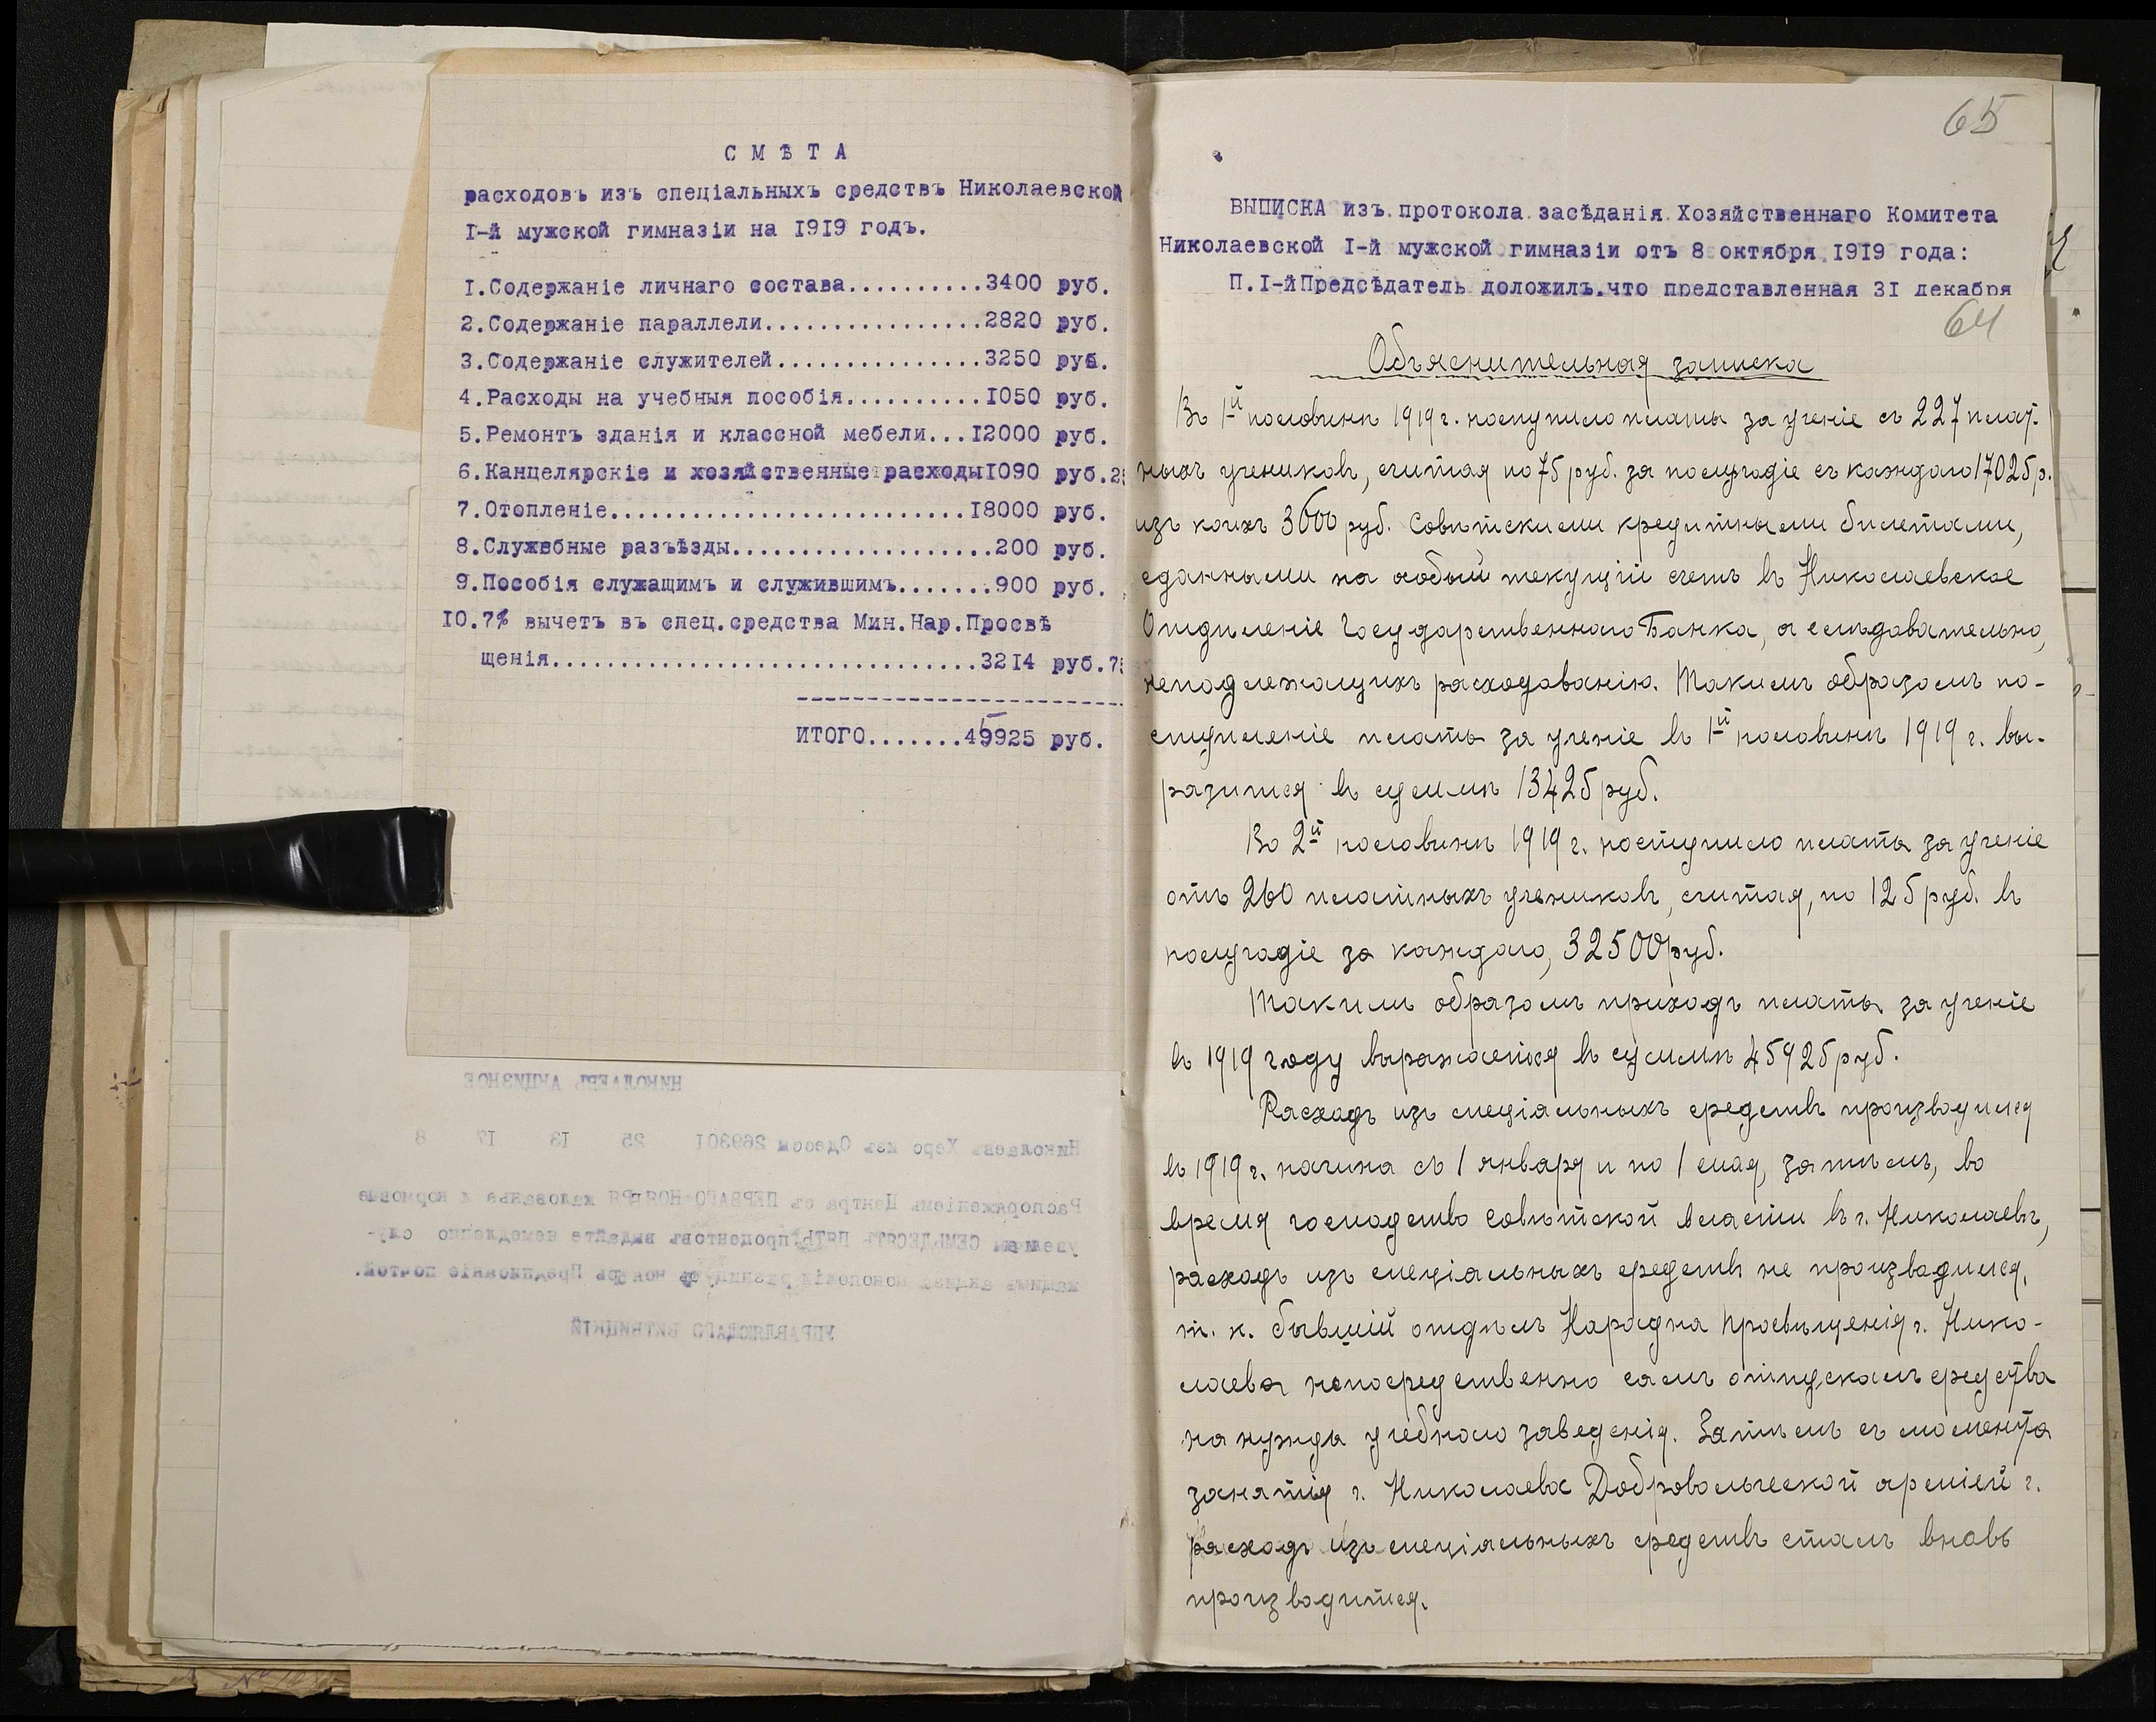 СМѢТА
расходовъ изъ спеціальныхъ средствъ Николаевской
I-й мужской гимназіи на 1919 годъ.
1.Содержаніе личнаго состава..........3400 руб.
2.Содержаніе параллели................2820 руб.
3.Содержаніе служителей...............3250 руб.
4.Расходы на учебныя пособія..........1050 руб.
5.Ремонтъ зданія и классной мебели...12000 руб.
6.Канцелярскіе и хозяйственные расходы1090 руб.25
7.Отопленіе..........................18000 руб.
8.Служебные разъѣзды...................200 руб.
9.Пособія служащимъ и служившимъ.......900 руб.
10.7% вычетъ въ спец.средства Мин.Нар.Просвѣ
щенія................................3214 руб.75
ИТОГО.......45925 руб.
НИКОЛАЕВЪ АКЦИЗНОЕ
Николаевъ Херс изъ Одессы 269301 25 13 17 8
Распоряженіемъ Центра съ ПЕРВАГО НОЯБРЯ жалованье и кормовые
СЕМЬДЕСЯТЪ ПЯТЬ процентовъ выдайте немедленно слу-
жащимъ акциза монополіи разницу ноябрь Предписаніе почтой.
УПРАВЛЯЮЩАГО ВИТВИЦКІЙ
65
ВЫПИСКА изъ протокола засѣданія Хозяйственнаго Комитета
Николаевской I-й мужской гимназіи отъ 8 октября 1919 года:
П.I-й Предсѣдатель доложилъ,что представленная 31 декабря
64
Объяснительная записка
Въ 1-й половинѣ 1919 г. поступило платы за ученіе съ 227 плат-
ныхъ учениковъ, считая по 75 руб. за полугодіе съ каждаго 17025 р.
изъ коихъ 3600 руб. совѣтскими кредитными билетами,
сданными на особый текущій счетъ въ Николаевское
Отдѣленіе Государственнаго Банка, а слѣдовательно,
неподлежащихъ расходованію. Такимъ образомъ по-
ступленіе платы за ученіе въ 1-й половинѣ 1919 г. вы-
разится въ суммѣ 13425 руб.
Во 2-й половинѣ 1919 г. поступило платы за ученіе
отъ 260 платныхъ учениковъ, считая, по 125 руб. въ
полугодіе за каждаго, 32500 руб.
Такимъ образомъ приходъ платы за ученіе
въ 1919 году выражается въ суммѣ 45925 руб.
Расходъ изъ спеціальныхъ средствъ производился
въ 1919 г. начина съ 1 января и по 1 мая, затѣмъ, во
время господства совѣтской власти въ г. Николаевѣ,
расходъ изъ спеціальныхъ средствъ не производился,
т. к. бывшій отдѣлъ Народна Просвѣщенія г. Нико-
лаева непосредственно самъ отпускалъ средства
на нужды учебнаго заведенія. Затѣмъ съ момента
занятія г. Николаева Добровольческой арміей г.
расходъ изъ спеціальныхъ средствъ сталъ вновь
производится.